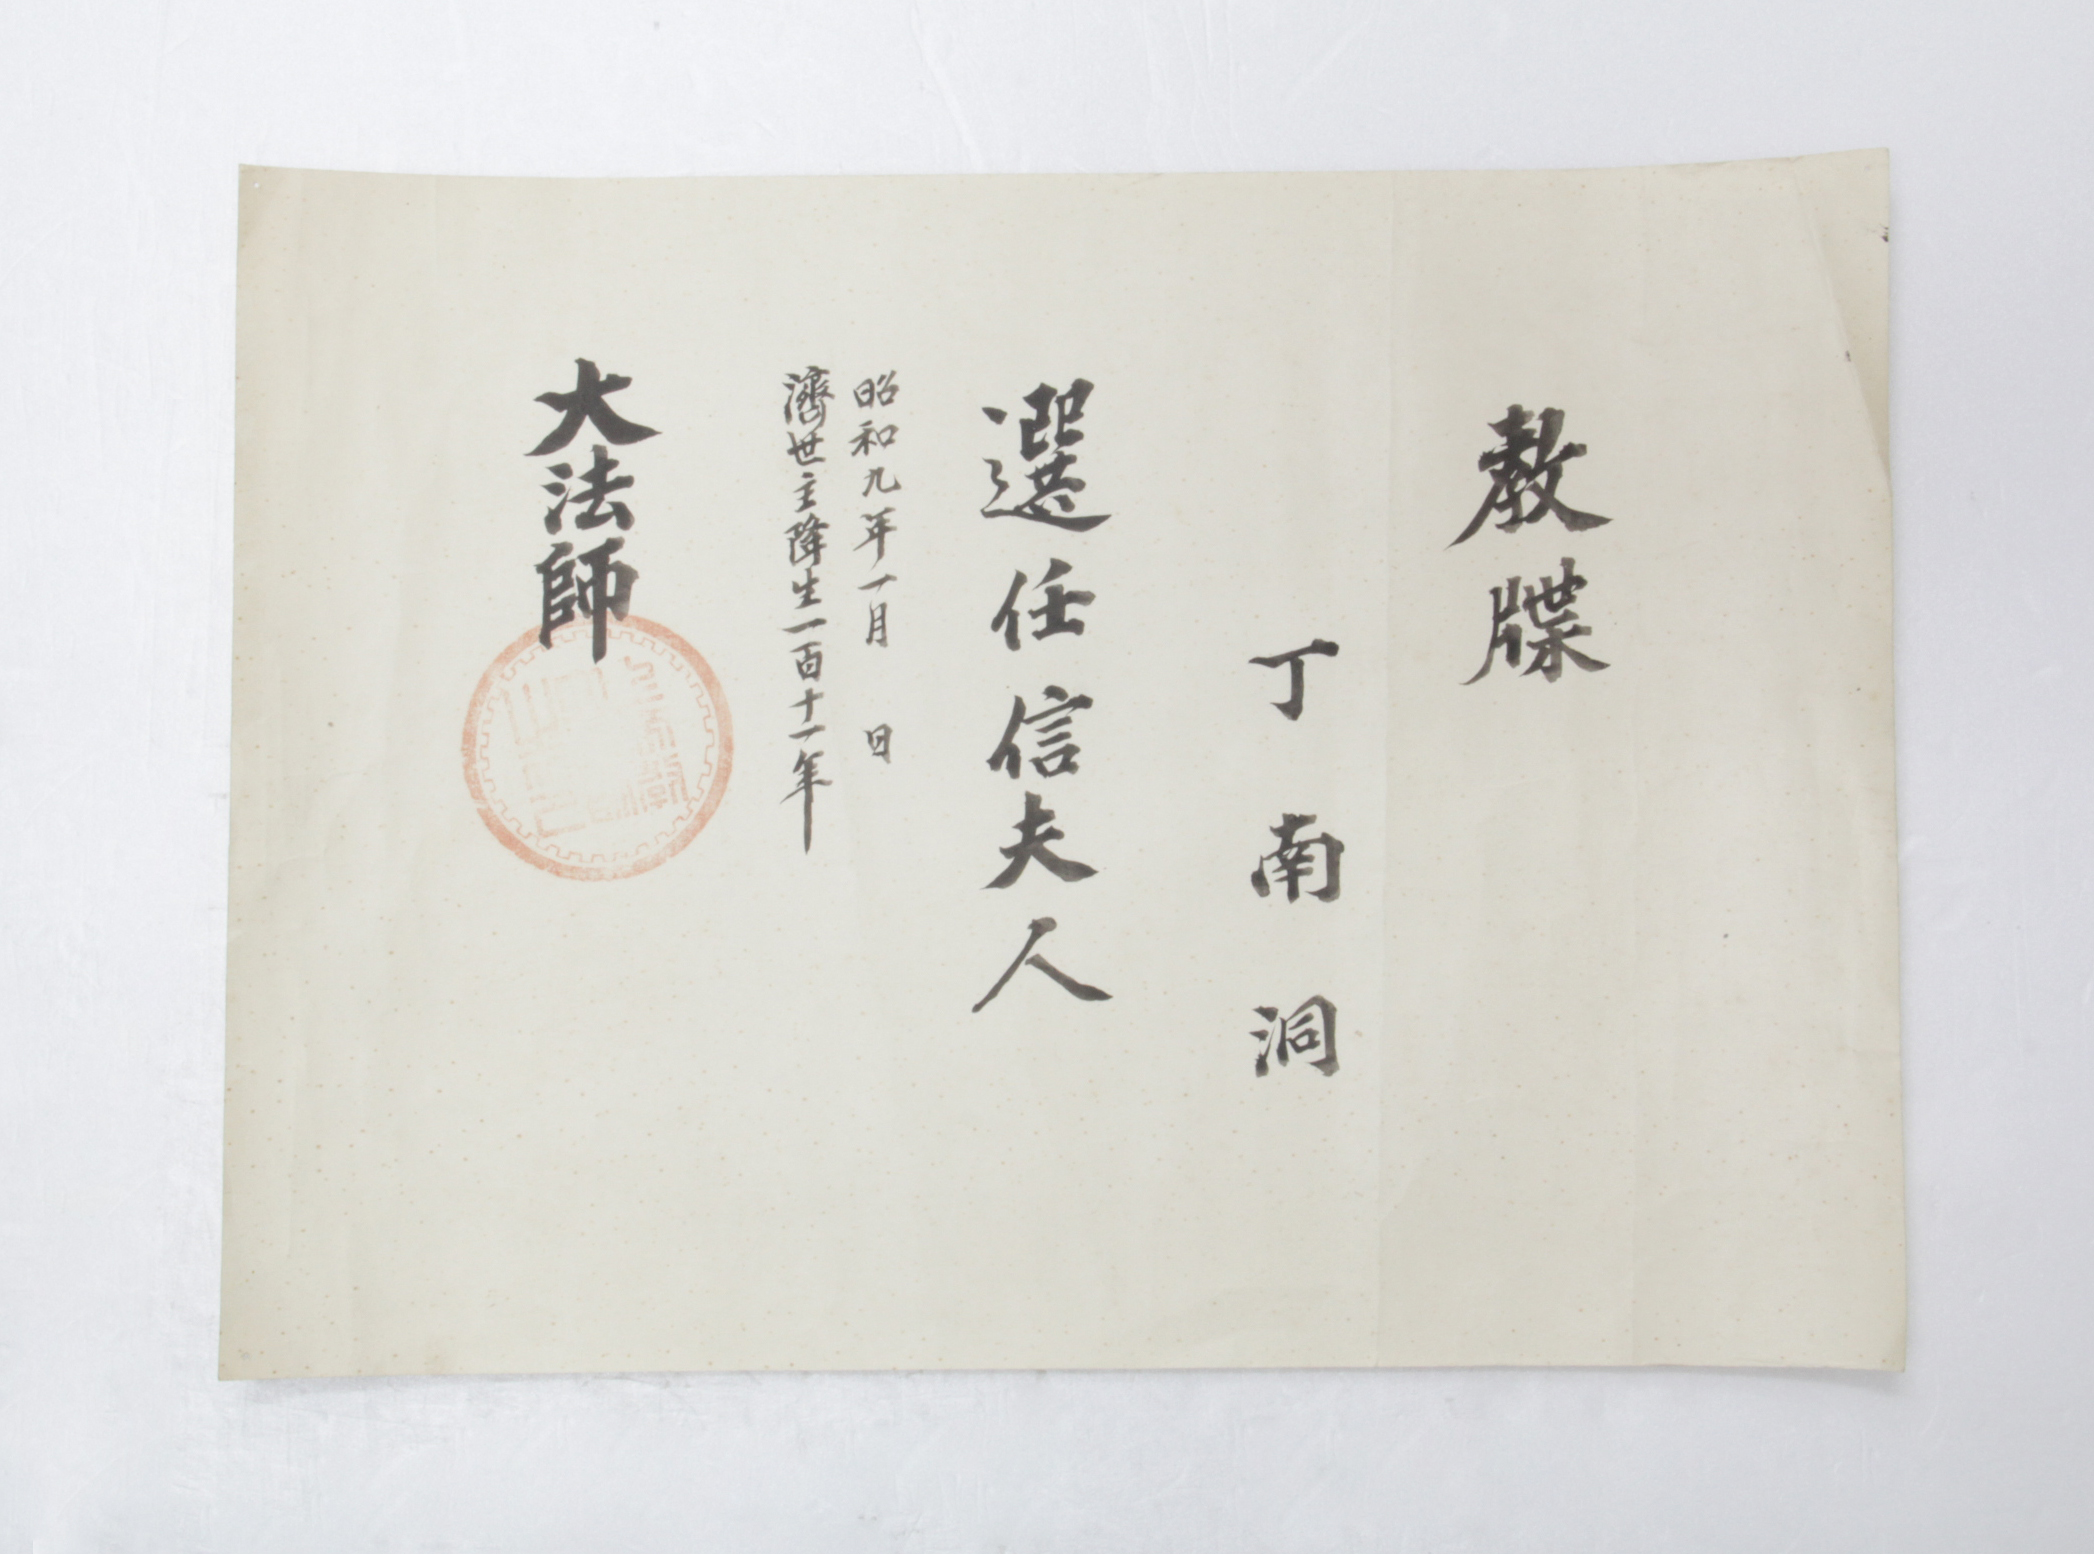 敎牒
丁南洞
選任信夫人
昭和九年一月　日
濟世主降生一百十一年
大法師